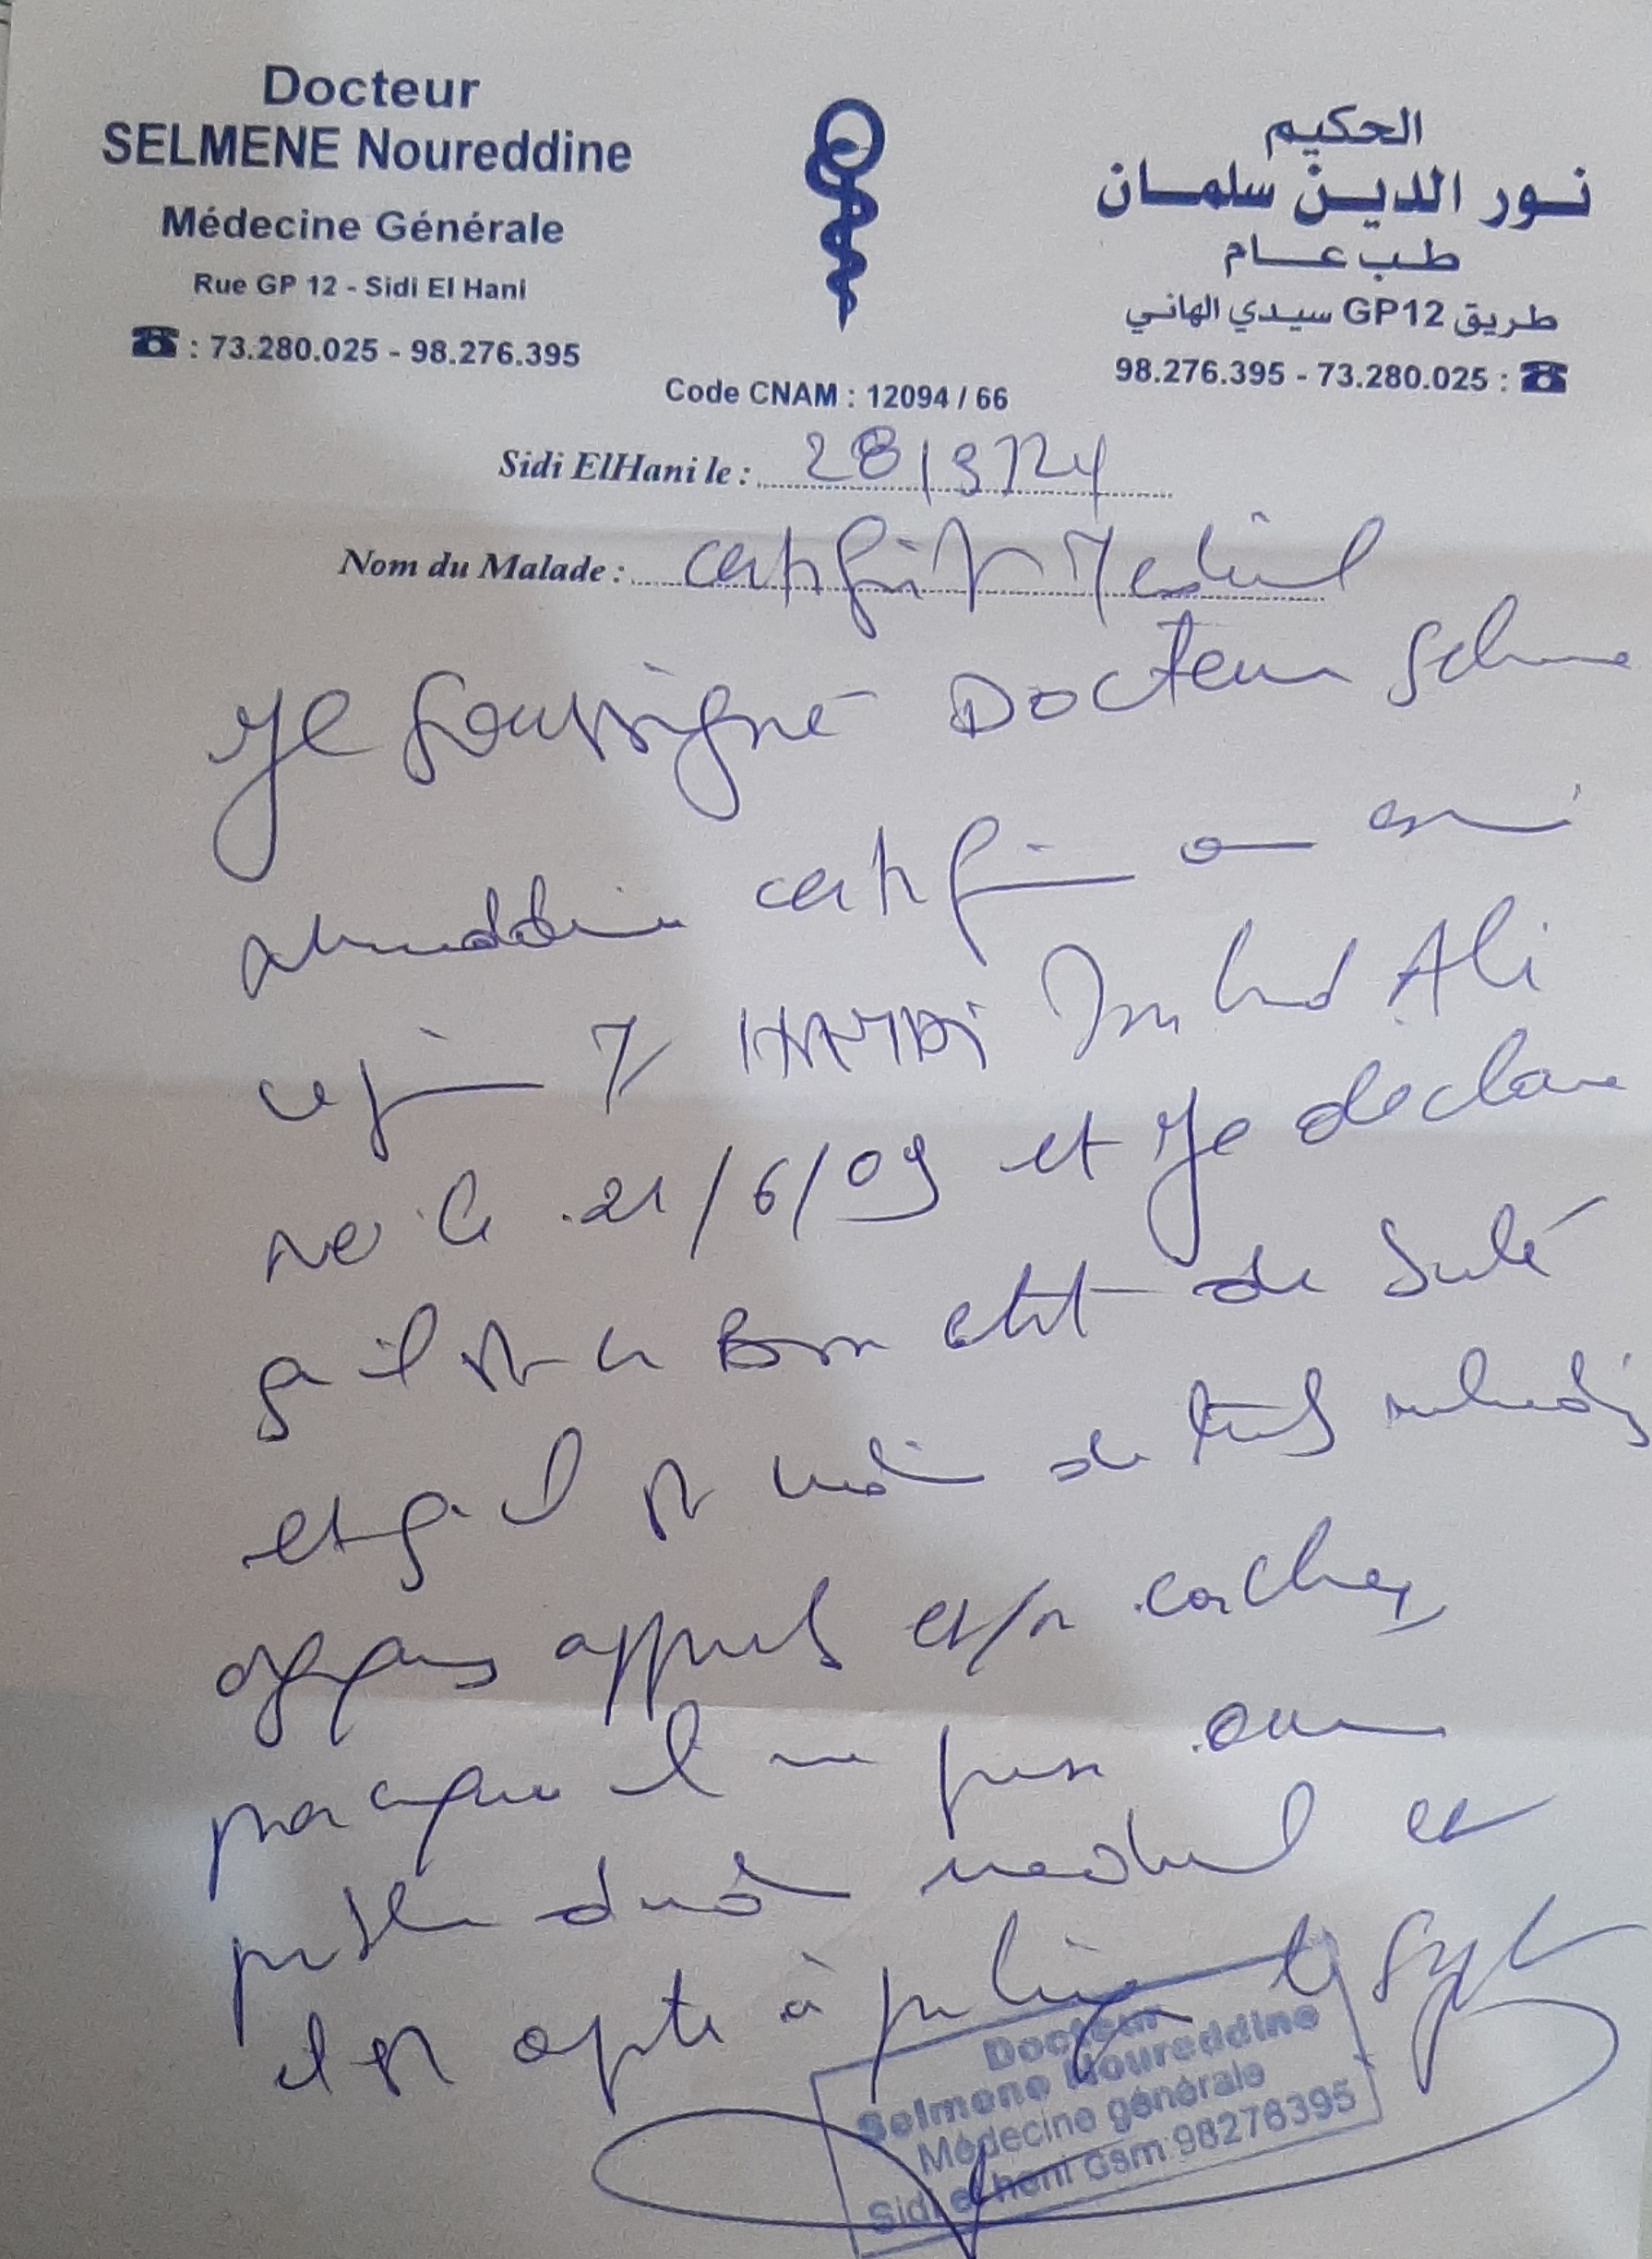 Docteur
SELMENE Noureddine
Médecine Générale
Rue GP 12 - Sidi El Hani
☎ : 73.280.025 - 98.276.395
الحكيم
نور الدين سلمان
طب عام
طريق GP12 سيدي الهاني
98.276.395 - 73.280.025 : ☎
Code CNAM : 12094 / 66
Sidi ElHani le : 28/9/24
Nom du Malade : certificat Medical
Je soussigné Docteur Selmene
Noureddine certifie avoir examiné
ce jour Mr HAMDI Mohamed Ali
né le 21/6/09 et Je declare
qu'il est en Bon etat de Santé
et qu'il est indemne de toutes maladies
organiques apparentes et/ou cachées
parce que il ne présente aucun
médical et
il est apte à pratiquer le sport
Docteur
Selmene Noureddine
Médecine générale
Sidi el heni Gsm 98276395